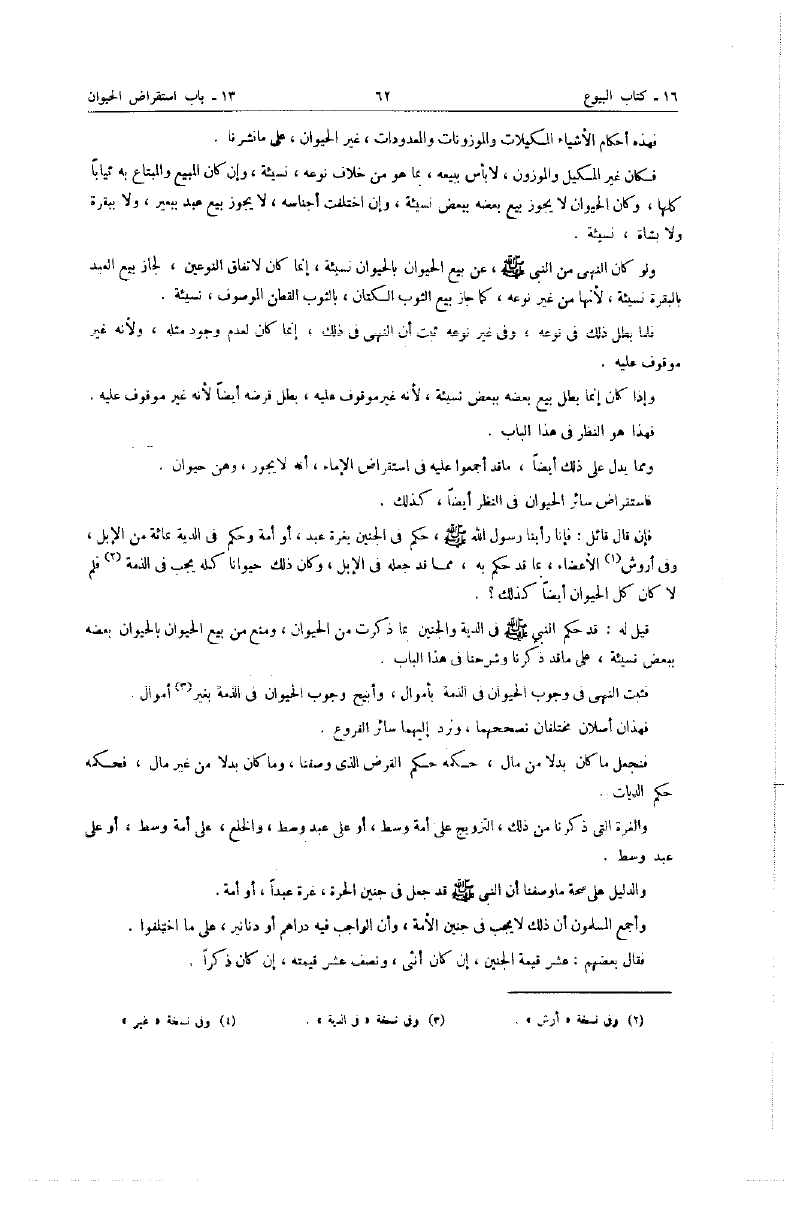 ١٦ - كتاب البيوع ٦٢ ١٣ - باب استقراض الحيوان
فهذه أحكام الأشياء المكيلات والموزونات والمعدودات ، غير الحيوان ، على مانشرنا .
فكان غير المكيل والموزون ، لابأس ببيعه ، بما هو من خلاف نوعه ، نسيئة ، وإن كان المبيع والمبتاع به ثياباً
كلها ، وكان الحيوان لا يجوز بيع بعضه ببعض نسيئة ، وإن اختلفت أجناسه ، لا يجوز بيع عبد ببعير ، ولا ببقرة
ولا بشاة ، نسيئة .
ولو كان النهى من النبي ﷺ ، عن بيع الحيوان بالحيوان نسيئة ، إنما كان لاتفاق النوعين ، لجاز بيع العبد
بالبقرة نسيئة ، لأنها من غير نوعه ، كما جاز بيع الثوب الكتان ، بالثوب القطن الموصوف ، نسيئة .
فلما بطل ذلك فى نوعه ، وفى غير نوعه ثبت أن النهى فى ذلك ، إنما كان لعدم وجود مثله ، ولأنه غير
موقوف عليه .
وإذا كان إنما بطل بيع بعضه ببعض نسيئة ، لأنه غيرموقوف عليه ، بطل قرضه أيضاً لأنه غير موقوف عليه .
فهذا هو النظر فى هذا الباب .
ومما يدل على ذلك أيضاً ، ماقد أجمعوا عليه فى استقراض الإماء ، أنه لايجوز ، وهن حيوان .
فاستقراض سائر الحيوان فى النظر أيضاً ، كذلك .
فإن قال قائل : فإنا رأينا رسول الله ﷺ ، حكم فى الجنين بغرة عبد ، أو أمة وحكم فى الدية بمائة من الإبل ،
وفى أروش(١) الأعضاء ، بما قد حكم به ، مما قد جعله فى الإبل ، وكان ذلك حيوانا كله يجب فى الذمة (٢) فلم
لا كان كل الحيوان أيضاً كذلك ؟ .
قيل له : قد حكم النبي ﷺ فى الدية والجنين بما ذكرت من الحيوان ، ومنع من بيع الحيوان بالحيوان بعضه
ببعض نسيئة ، على ماقد ذكرنا وشرحنا فى هذا الباب .
فثبت النهى فى وجوب الحيوان فى الذمة بأموال ، وأبيح وجوب الحيوان فى الذمة بغير(٣) أموال .
فهذان أصلان مختلفان نصححهما ، ونرد إليهما سائر الفروع .
فنجعل ما كان بدلا من مال ، حكمه حكم القرض الذى وصفنا ، وما كان بدلا من غير مال ، فحكمه
حكم الديات .
والغرة التى ذكرنا من ذلك ، التزويج على أمة وسط ، أو على عبد وسط ، والخلع ، على أمة وسط ، أو على
عبد وسط .
والدليل على صحة ماوصفنا أن النبي ﷺ قد جعل فى جنين الحرة ، غرة عبداً ، أو أمة .
وأجمع المسلمون أن ذلك لايجب فى جنين الأمة ، وأن الواجب فيه دراهم أو دنانير ، على ما اختلفوا .
فقال بعضهم : عشر قيمة الجنين ، إن كان أنثى ، ونصف عشر قيمته ، إن كان ذكراً .
(٢) وفى نسخة « أرش » . (٣) وفى نسخة « فى الدية » . (٤) وفى نسخة « غير »